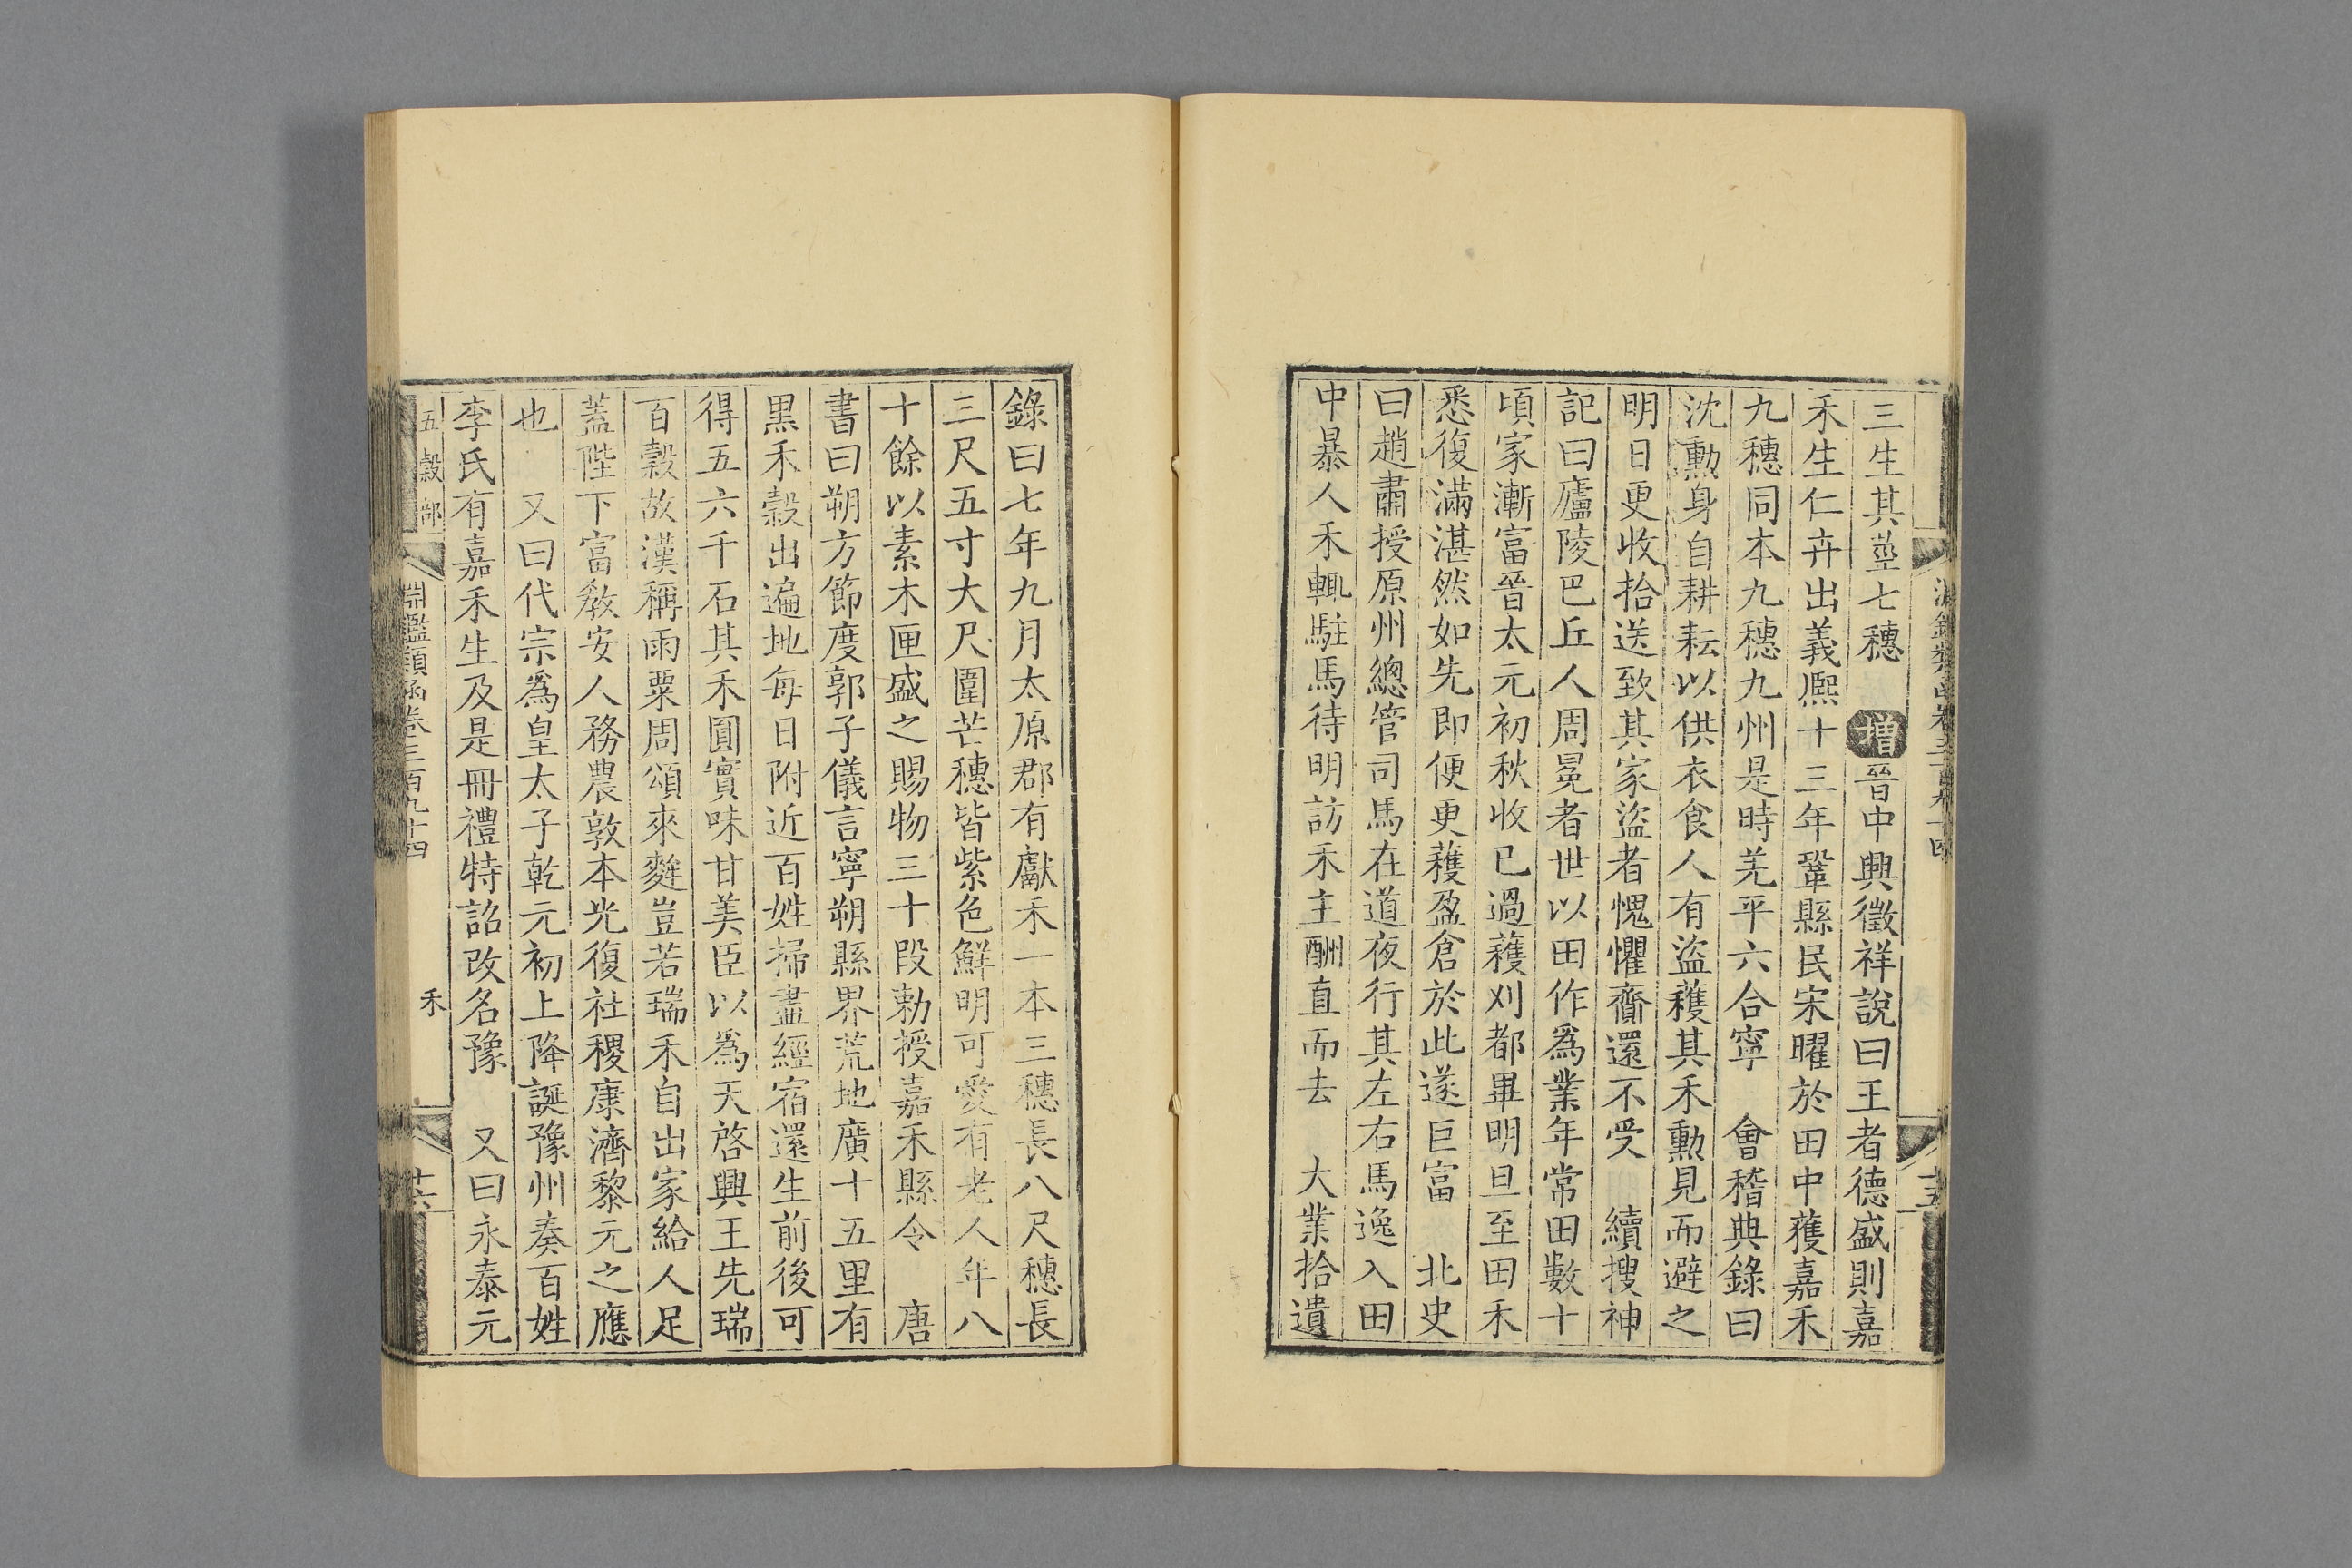 三生其莖七穗　增晉中興徵祥說曰王者德盛則嘉
禾生仁卉出義熈十三年鞏縣民宋曜於田中獲嘉禾
九穗同本九穗九州是時羌平六合寧　會稽典錄曰
沈勲身自耕耘以供衣食人有盜䕶其禾勲見而避之
明日更收拾送致其家盜者愧懼齎還不受　續搜神
記曰廬陵巴丘人周冕者世以田作爲業年常田數十
頃家漸富晉太元初秋收已過䕶刈都畢明旦至田禾
悉復滿湛然如先即便更䕶盈倉於此遂巨富　北史
曰趙肅授原州總管司馬在道夜行其左右馬逸入田
中暴人禾輒駐馬待明訪禾主酬直而去　大業拾遺
錄曰七年九月太原郡有獻禾一本三穗長八尺穗長
三尺五寸大尺圍芒穗皆紫色鮮明可愛有老人年八
十餘以素木匣盛之賜物三十段勅授嘉禾縣令　唐
書曰朔方節度郭子儀言寧朔縣界荒地廣十五里有
黑禾穀出遍地每日附近百姓掃盡經宿還生前後可
得五六千石其禾圓實味甘美臣以爲天啓興王先瑞
百穀故漢稱雨粟周頌來麰豈若瑞禾自出家給人足
蓋陛下富敎安人務農敦本光復社稷康濟黎元之應
也　又曰代宗爲皇太子乾元初上降誕豫州奏百姓
李氏有嘉禾生及是冊禮特詔改名豫　又曰永泰元
五穀部　淵鑑類函卷三百九十四　禾　十六